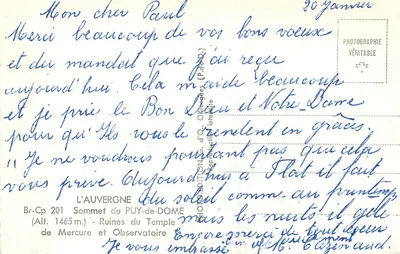 20 Janvier
Mon cher Paul
Merci beaucoup de vos bons voeux
et du mandat que j'ai reçu
aujourd'hui. Cela m'aide beaucoup
et je prie le Bon Dieu et Notre-Dame
pour qu'Ils vous le rendent en grâces
"Je ne voudrais pourtant pas que cela
vous prive. Aujourd'hui à Flat il fait
du soleil comme au printemps
mais les nuits, il gèle
Encore merci de tout coeur
Je vous embrasse
PHOTOGRAPHIE
VÉRITABLE
L'AUVERGNE
Br-Cp 201 Sommet du PUY-de-DOME
(Alt. 1465 m.) - Ruines du Temple
de Mercure et Observatoire